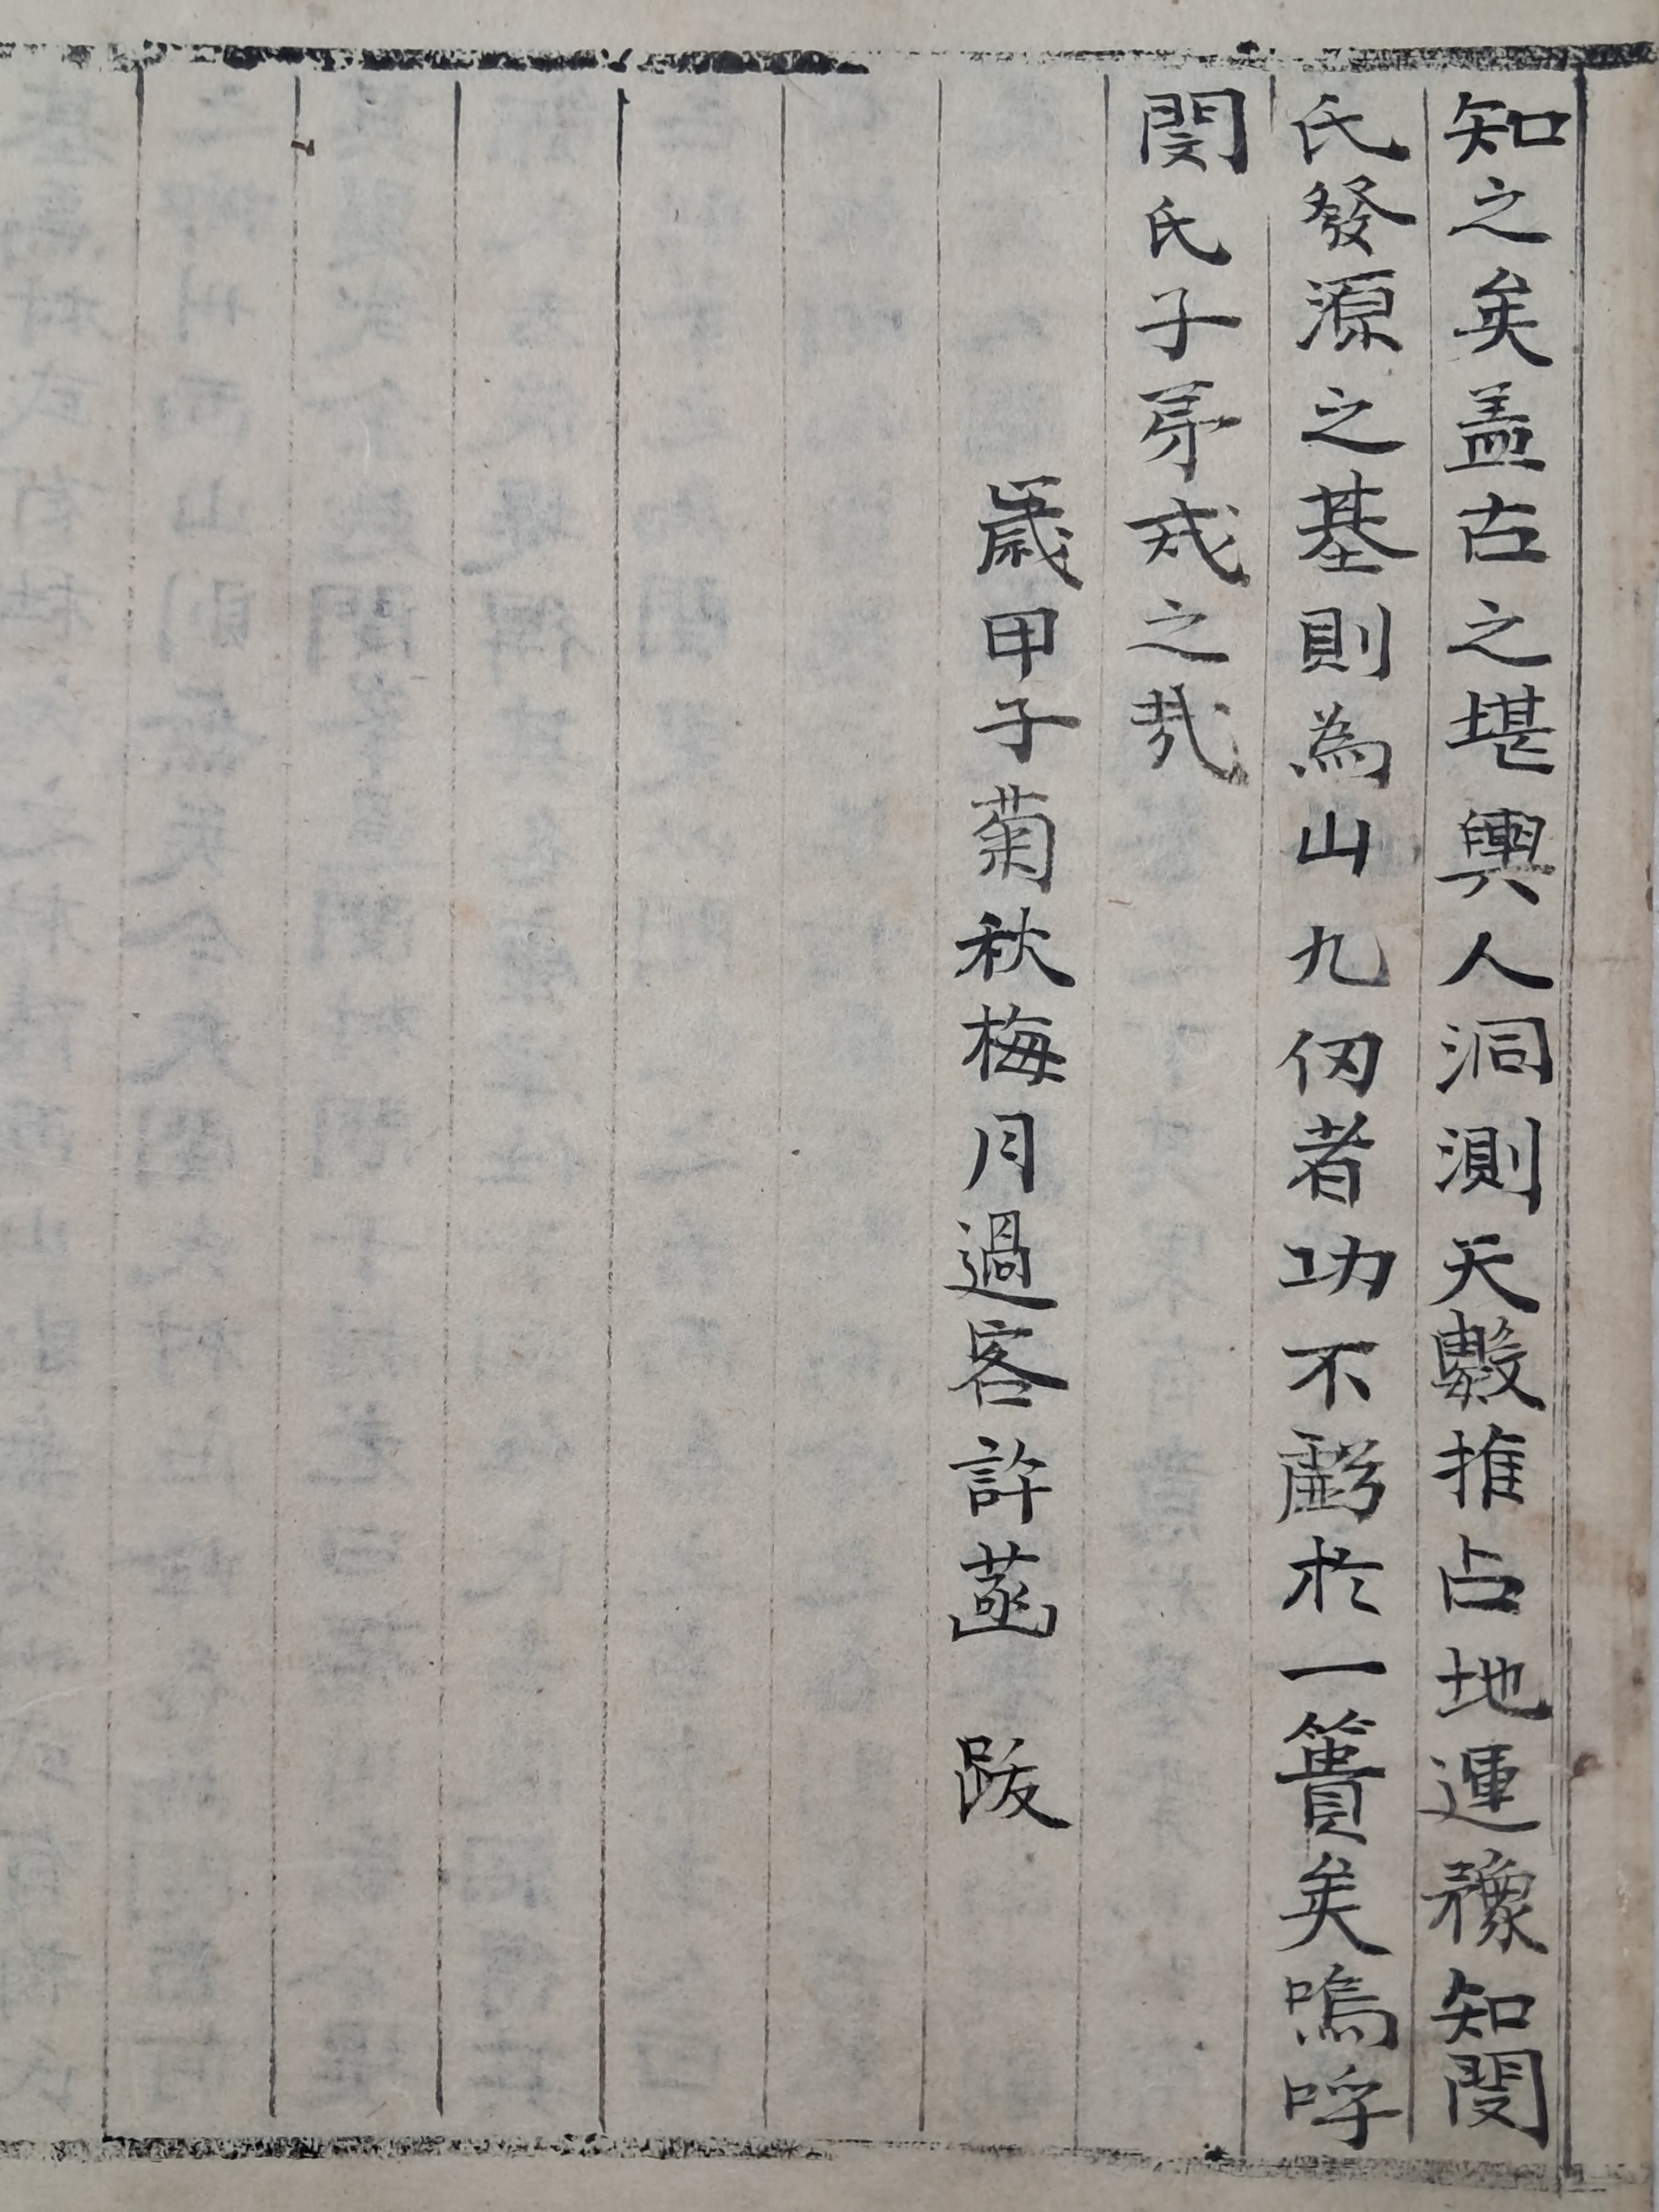 知之矣盖古之堪輿人洞測天數推占地運豫知閔
氏發源之基則為山九仞者功不虧於一簣矣嗚呼
閔氏子孫戒之哉
歲甲子菊秋梅月過客許菡 跋